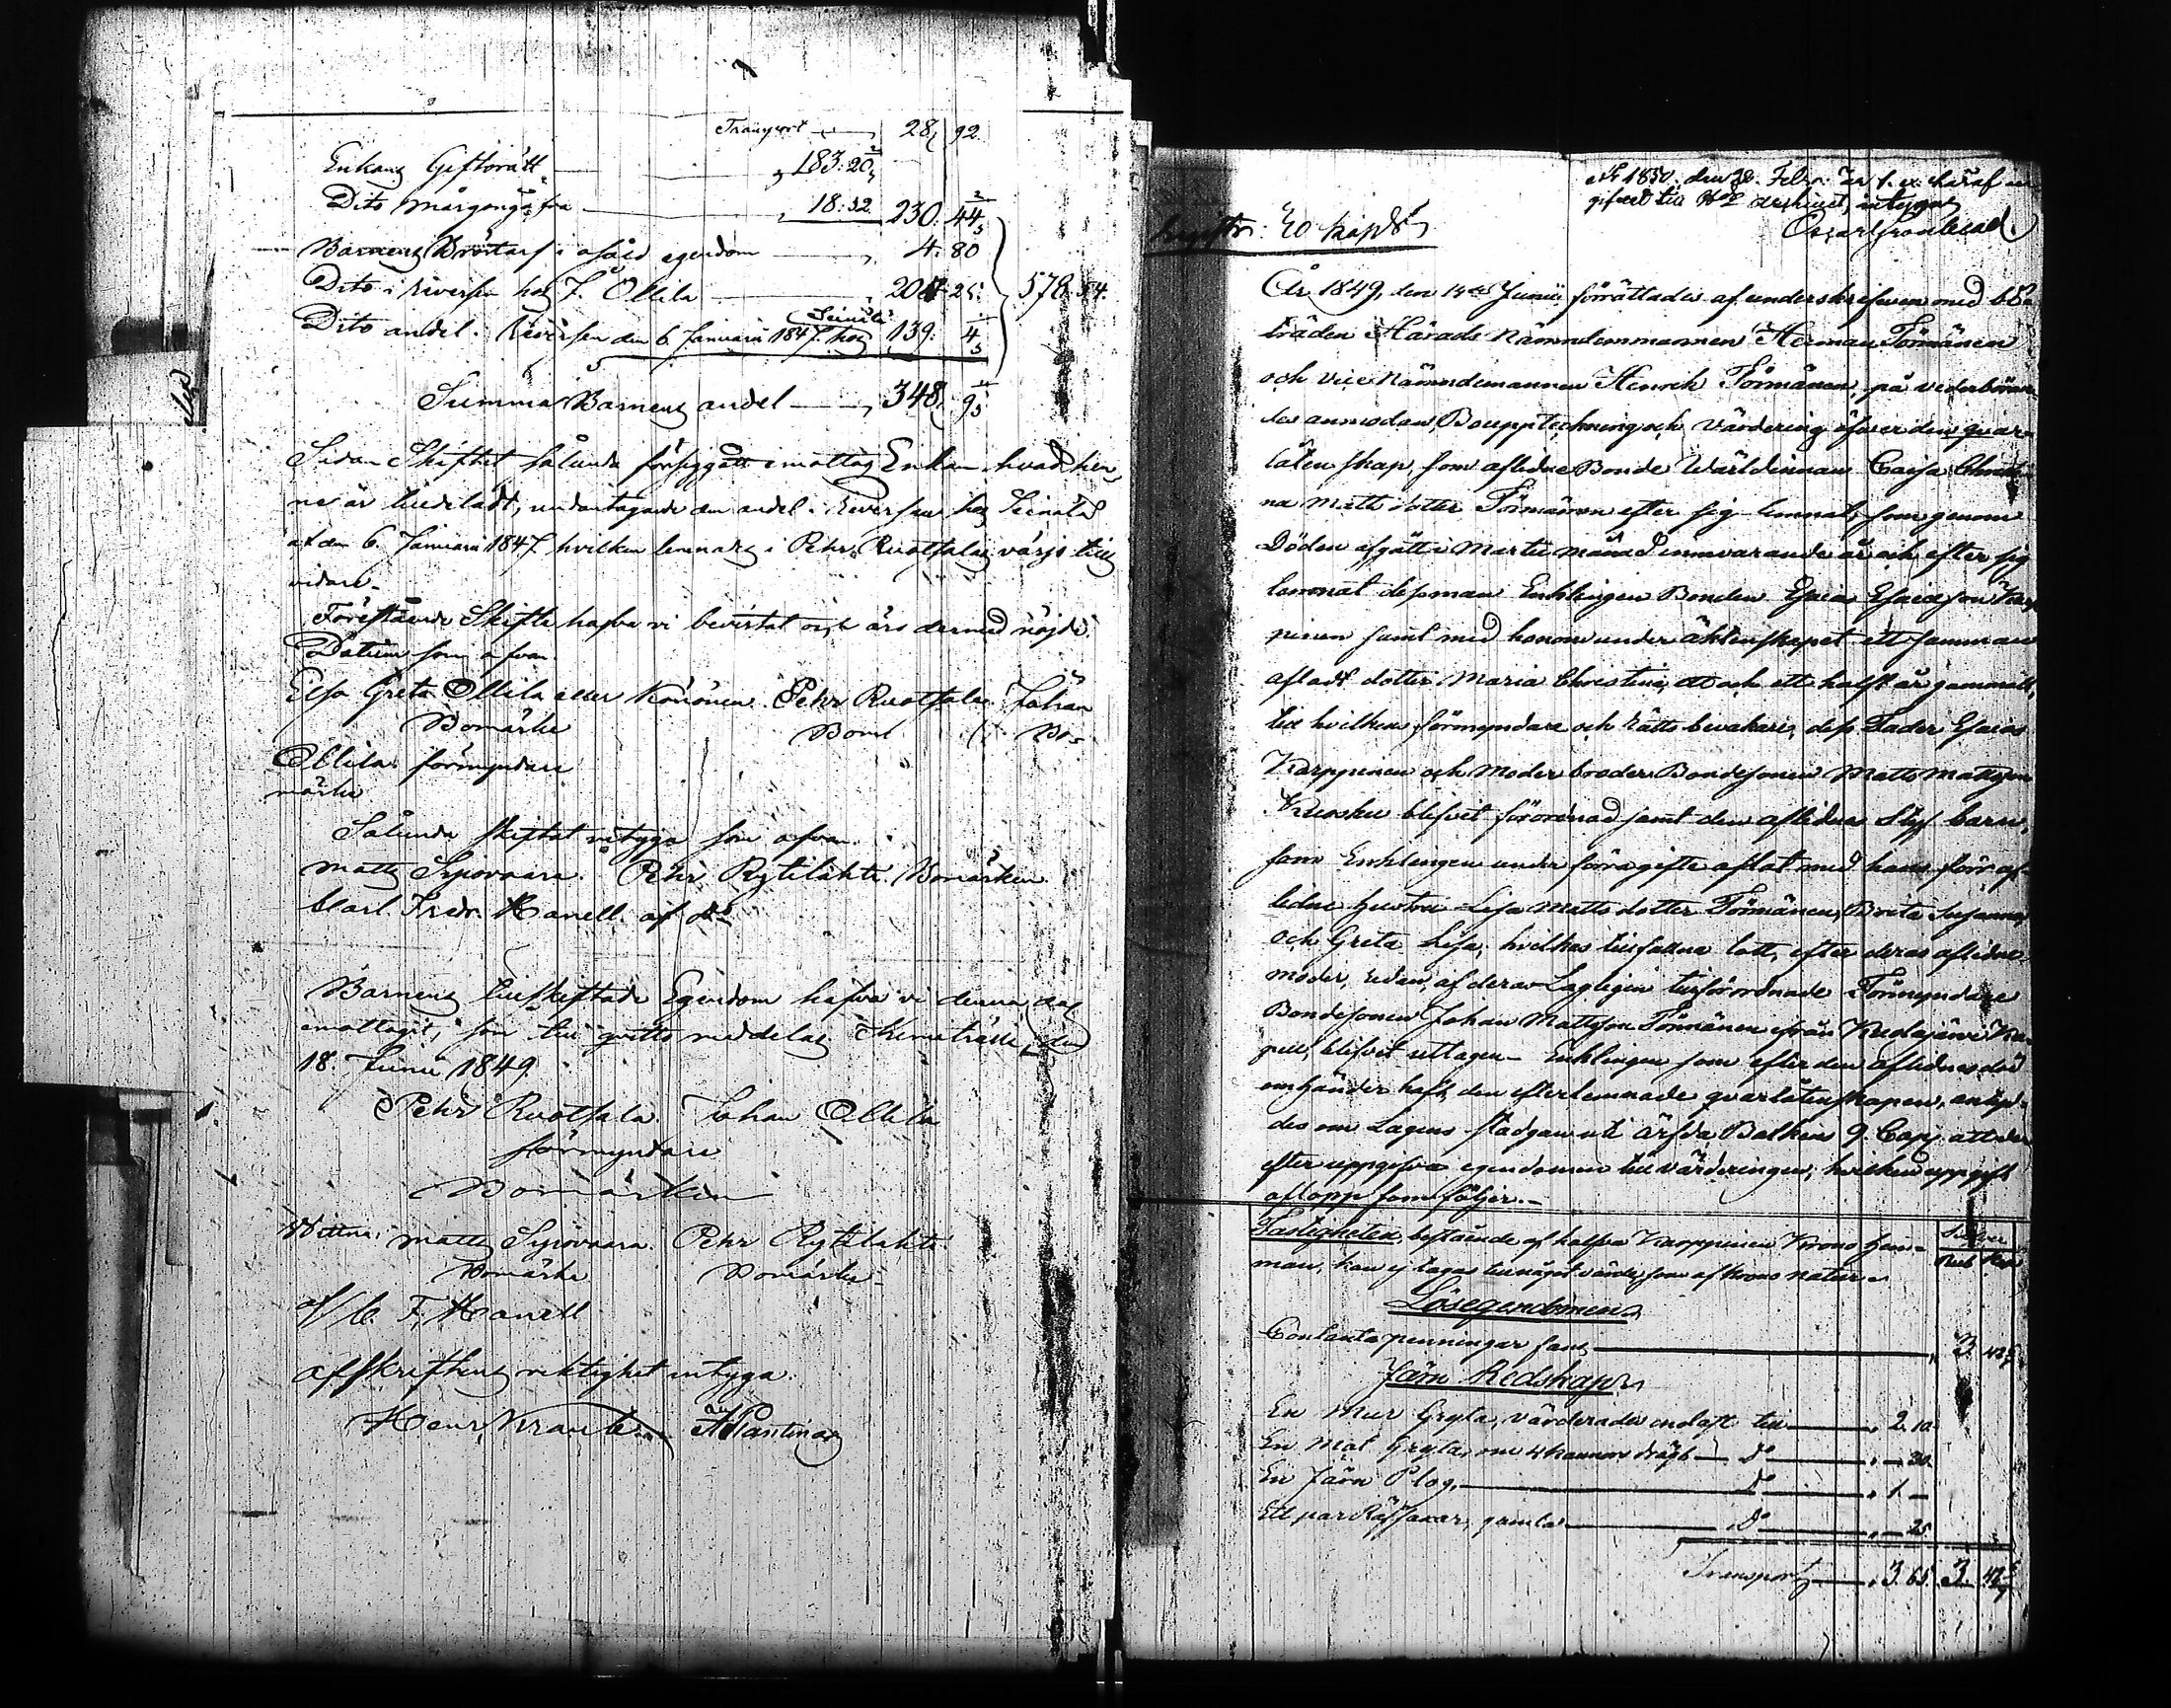 Transport 28, 92.
Enkans Giftorätt 183:20,
Dito Morgongåfva 18:32 230. 44
Barnens Bröstarf i osåld egendom 4. 80
Dito i Reversen hos J. Ollila 204 25. 578. 54.
Dito andel. Reversen den 6. Januarii 1847. hos 139. 4
Summa Barnens andel 348, 95
Sedan Skiftet sålunda försiggått emottog Enkan hvad hen
ne är tilldeladt, undantagande en andel i Reversen hos
af den 6. Januarii 1847. hvilken lemnades i Pehr Ruotsalas värjo till
vidare.
Förestående Skifte hafva vi bevistat och äro dermed nöjde.
Datum som ofvan.
Elsa Greta Ollila eller Kononen. Pehr Ruotsala. Johan
Bomärke Bom Bo-
Ollila förmyndare
märke
Sålunda skiftat intyga som ofvan.
Matts Sipovaara. Pehr Rytilahti. Bomärken.
Carl Fredr. Hanell.
Barnens tillskiftade Egendom hafva vi denna dag
emottagit, som till qvitto meddelas. Kemiträsk den
18. Junii 1849.
Pehr Ruotsala. Johan Ollila
förmyndare
Bomärken
Wittna: Matts Sipovaara. Pehr Rytilahti.
Bomärke Bomärke
C. F. Hanell
Afskriftens riktighet intyga.
Henr. Kranck
1850. den 28. Febr. är 1. ex. häraf in
gifvet till archivet, intygar
Oscar
20 kop Sr
År 1849, den 14de Junii förrättades af underskrifven med bi
träden Härads Nämndemannen Herman Törmänen
och vice Nämndemannen Henrik Törmänen, på vederböran
des anmodan, Bouppteckning och Värdering öfver den qvar
låtenskap, som aflidne Bonde Wärdinnan Caisa Christi
na Matts dotter Törmänen efter sig lemnat, som genom
Döden afgått i Martii månad innevarande år och efter sig
lemnat dess man Enklingen Bonden Esaias Esaiasson Karp
pinen samt med honom under äktenskapet ett samman
afladt dotter Maria Christina, ett och ett halft år gammalt,
till hvilken förmyndare och rätts bevakare, dess Fader Esaias
Karppinen och Moder broder Bondesonen Matts Mattsson
Kuosku blifvit förordnad samt den aflidnas Styf barn,
som Enklingen under förra gifte aflat med hans förr af
lidne hustru Lisa Matts dotter Törmänen, Brita Susanna,
och Greta Lisa, hvilkas tillfallna lott, efter deras aflidne
moder, redan af deras Lagligen tillförordnade Förmyndare
Bondesonen Johan Mattsson Törmänen ifrån Kuolajärvi Ka
pell, blifvit uttagen. Enklingen som efter den aflidnas död
omhänder haft den efterlemnade qvarlåtenskapen,
des om Lagens stadgan uti Ärfda Balkens 9. Cap. att der
efter uppgifva egendomen till värderingen, hvilken uppgift
aflopp som följer.
Fastigheten, bestående af halfva Karppinen Krono Hem- Silfver
man, kan ej tagas till något värde som af Krono natur. Rub Kop
Lösegendomen
Contanta penningar fans 3. 42
Järn Redskap
En Mur Gryta, värderades endast till 2. 10
En Mat Gryta, om 4 kannors drägt Do 30.
En Järn Plog, Do 1 –
Ett par Räfsaxar, gamla Do 25
Transport 3. 65 3. 42